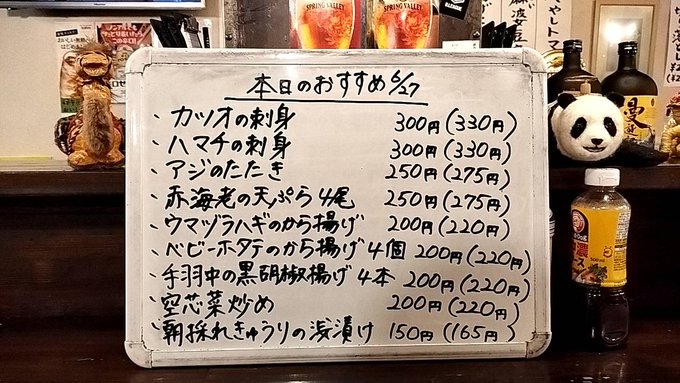 SPRING VALLEY
SPRING VALLEY
本日のおすすめ 6/27
・カツオの刺身 300円(330円)
・ハマチの刺身 300円(330円)
・アジのたたき 250円(275円)
・赤海老の天ぷら4尾 250円(275円)
・ウマヅラハギのから揚げ 200円(220円)
・ベビーホタテのから揚げ4個 200円(220円)
・手羽中の黒胡椒揚げ4本 200円(220円)
・空芯菜炒め 200円(220円)
・朝採れきゅうりの浅漬け 150円(165円)